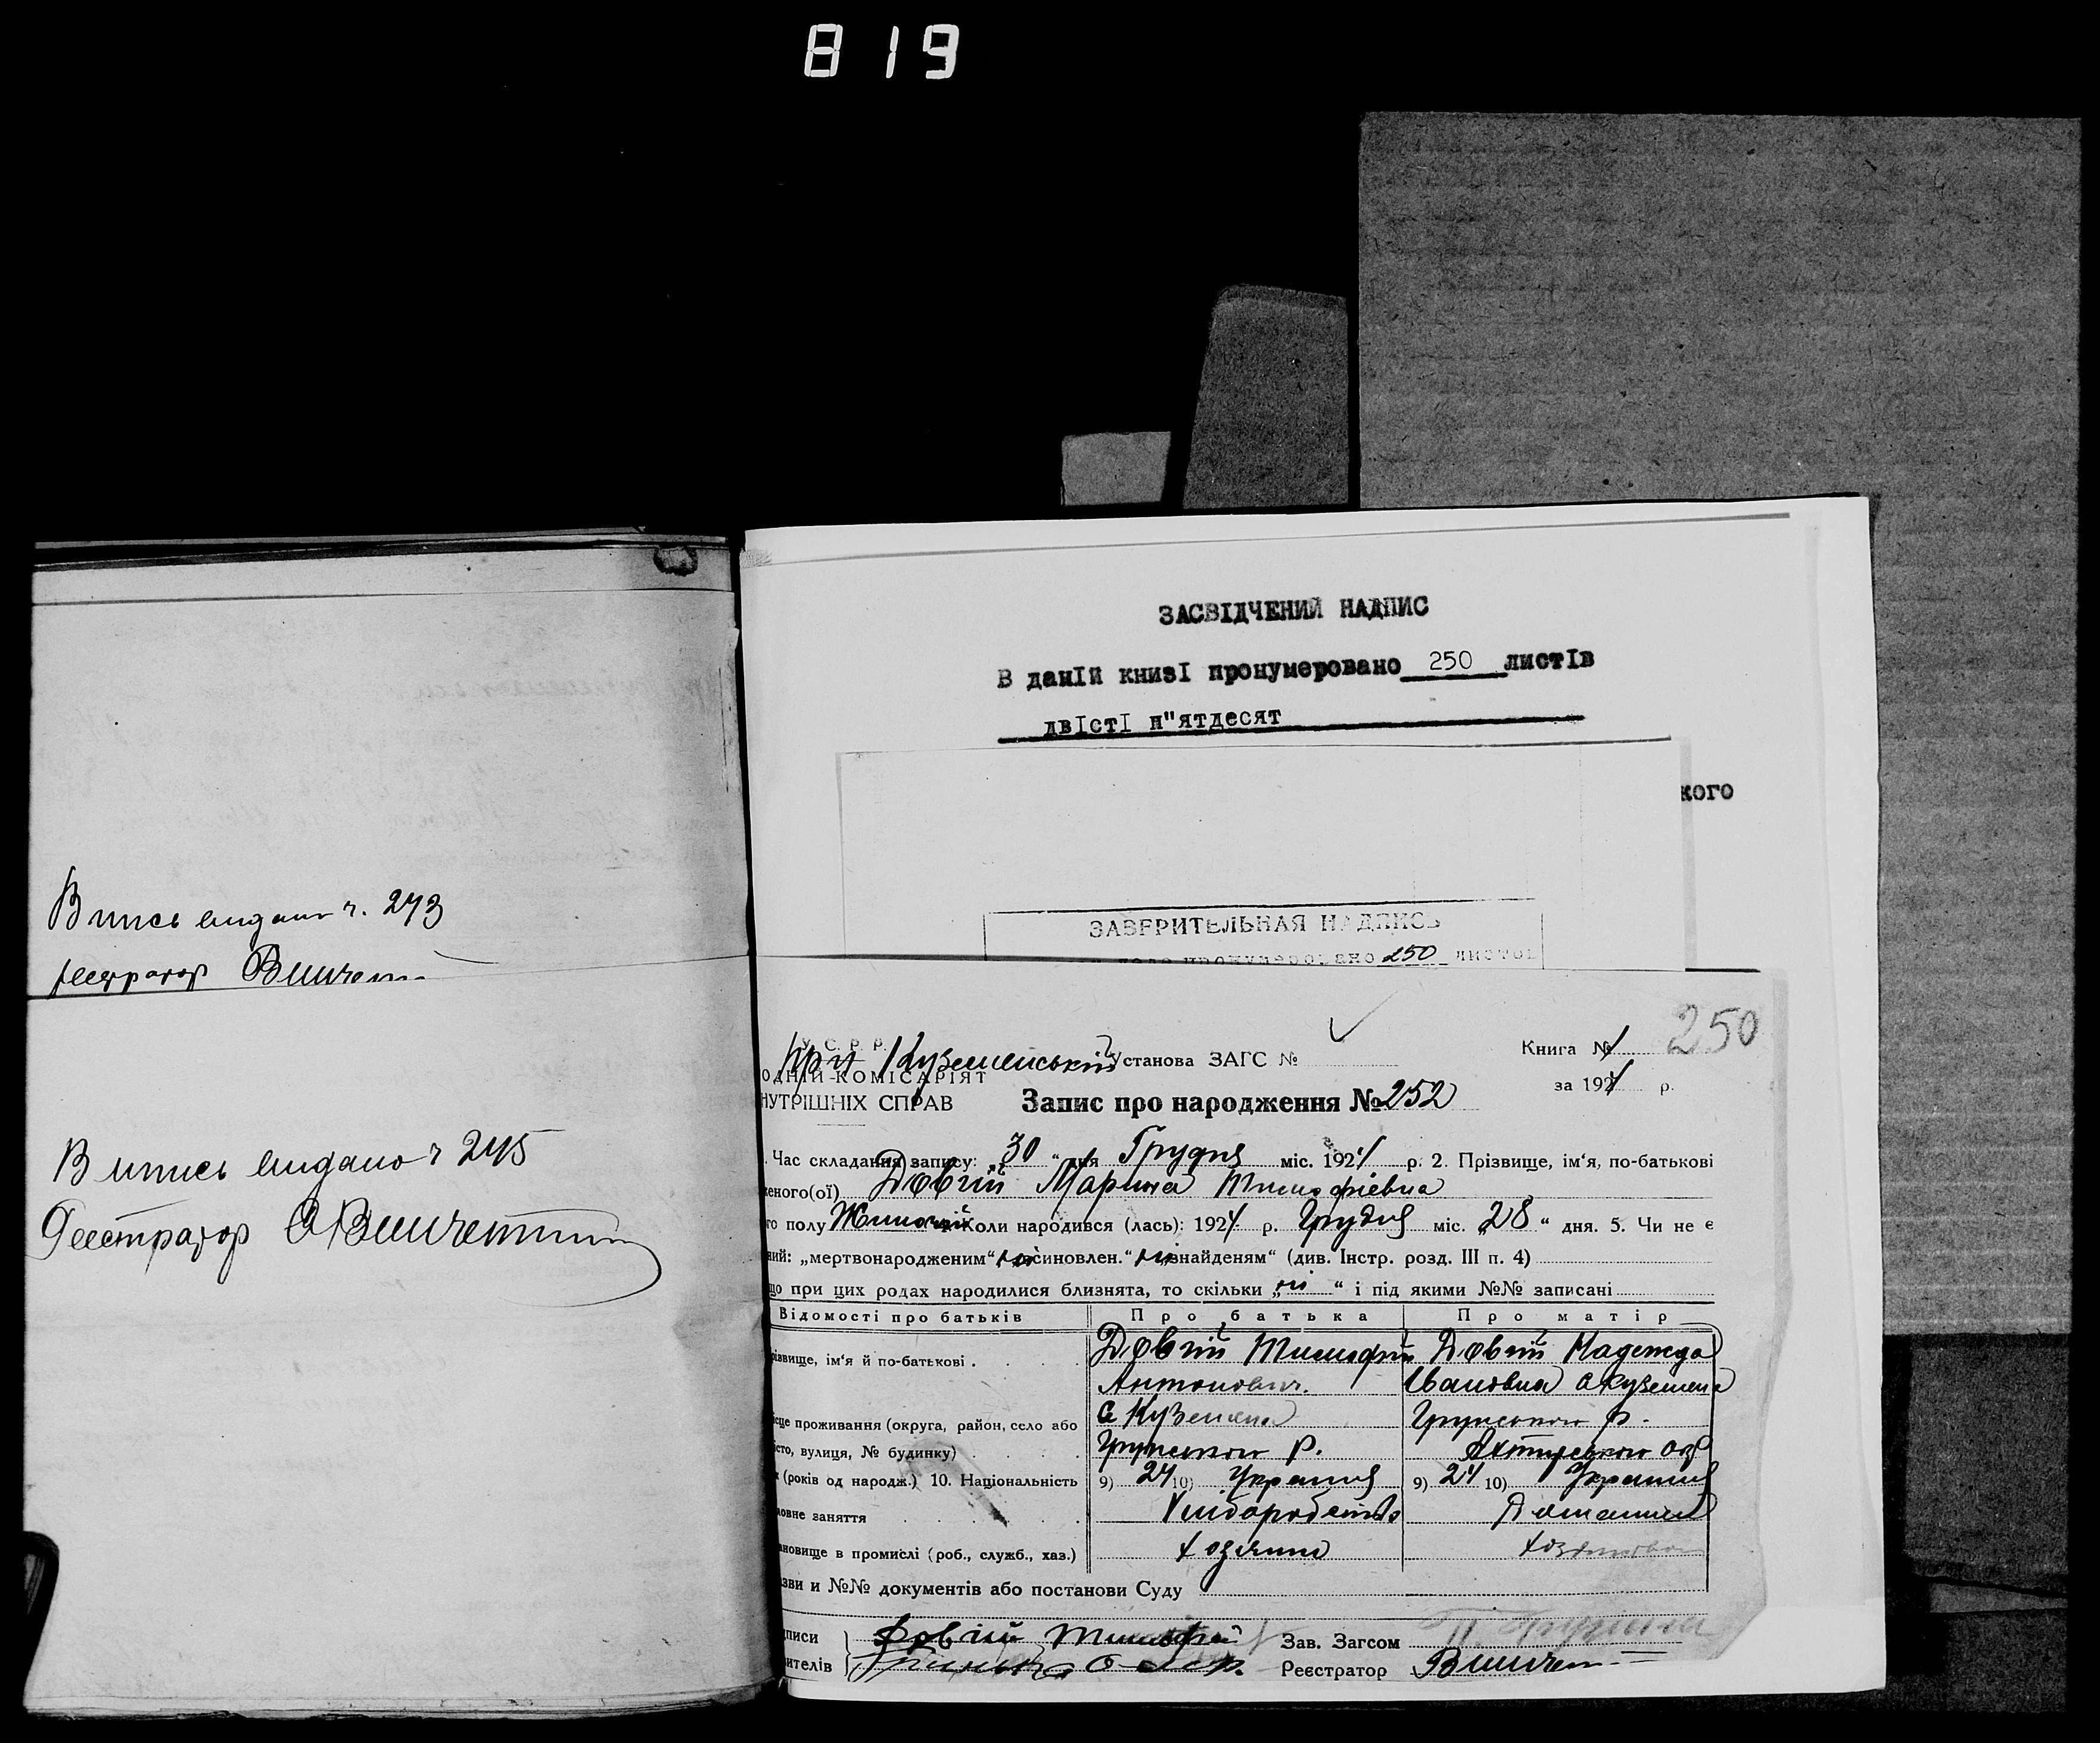 819
Випись видано ч. 243
реєстратор
Випись видано ч 245
Реєстратор
ЗАСВІДЧЕНИЙ НАДПИС
В даній книзі пронумеровано 250 листів
двісті п"ятдесят
кого
ЗАВЕРИТЕЛЬНАЯ НАДПИСЬ
250 листов
250
У. С. Р. Р.
при Куземенський Установа ЗАГС №
Книга № 1
ОДНІЙ КОМІСАРІЯТ
за 1924 р.
НУТРІШНІХ СПРАВ
Запис про народження № 252
Час складання запису: „30“ дня Грудня міс. 1924 р. 2. Прізвище, ім‘я, по-батькові
еного(ої) Довгій Марина Тимофіевна
го полу Жиночий Коли народився (лась): 1924 р. Грудня міс. „28“ дня. 5. Чи не є
ний: „мертвонародженим“ ні „всиновлен.“ ні „знайденям“ (див. Інстр. розд. III п. 4)
що при цих родах народилися близнята, то скільки „ні“ і під якими №№ записані
Відомості про батьків Про батька Про матір
різвище, ім‘я й по-батькові Довгій Тимофій Довгій Надежда
Антонович. Івановна с Куземена
ісце проживання (округа, район, село або с Куземена Грунського р.
істо, вулиця, № будинку) Грунського Р. Ахтирського окр
(років од народж.) 10. Національність 9) 24 10) Украинец 9) 24 10) Украинка
овне заняття Хліборобство Домашнее
ановище в промислі (роб., служб., хаз.) хозяина хозяйка
зви и №№ документів або постанови Суду
дписи Довгій Тимофей Зав. Загсом
ителів Реєстратор